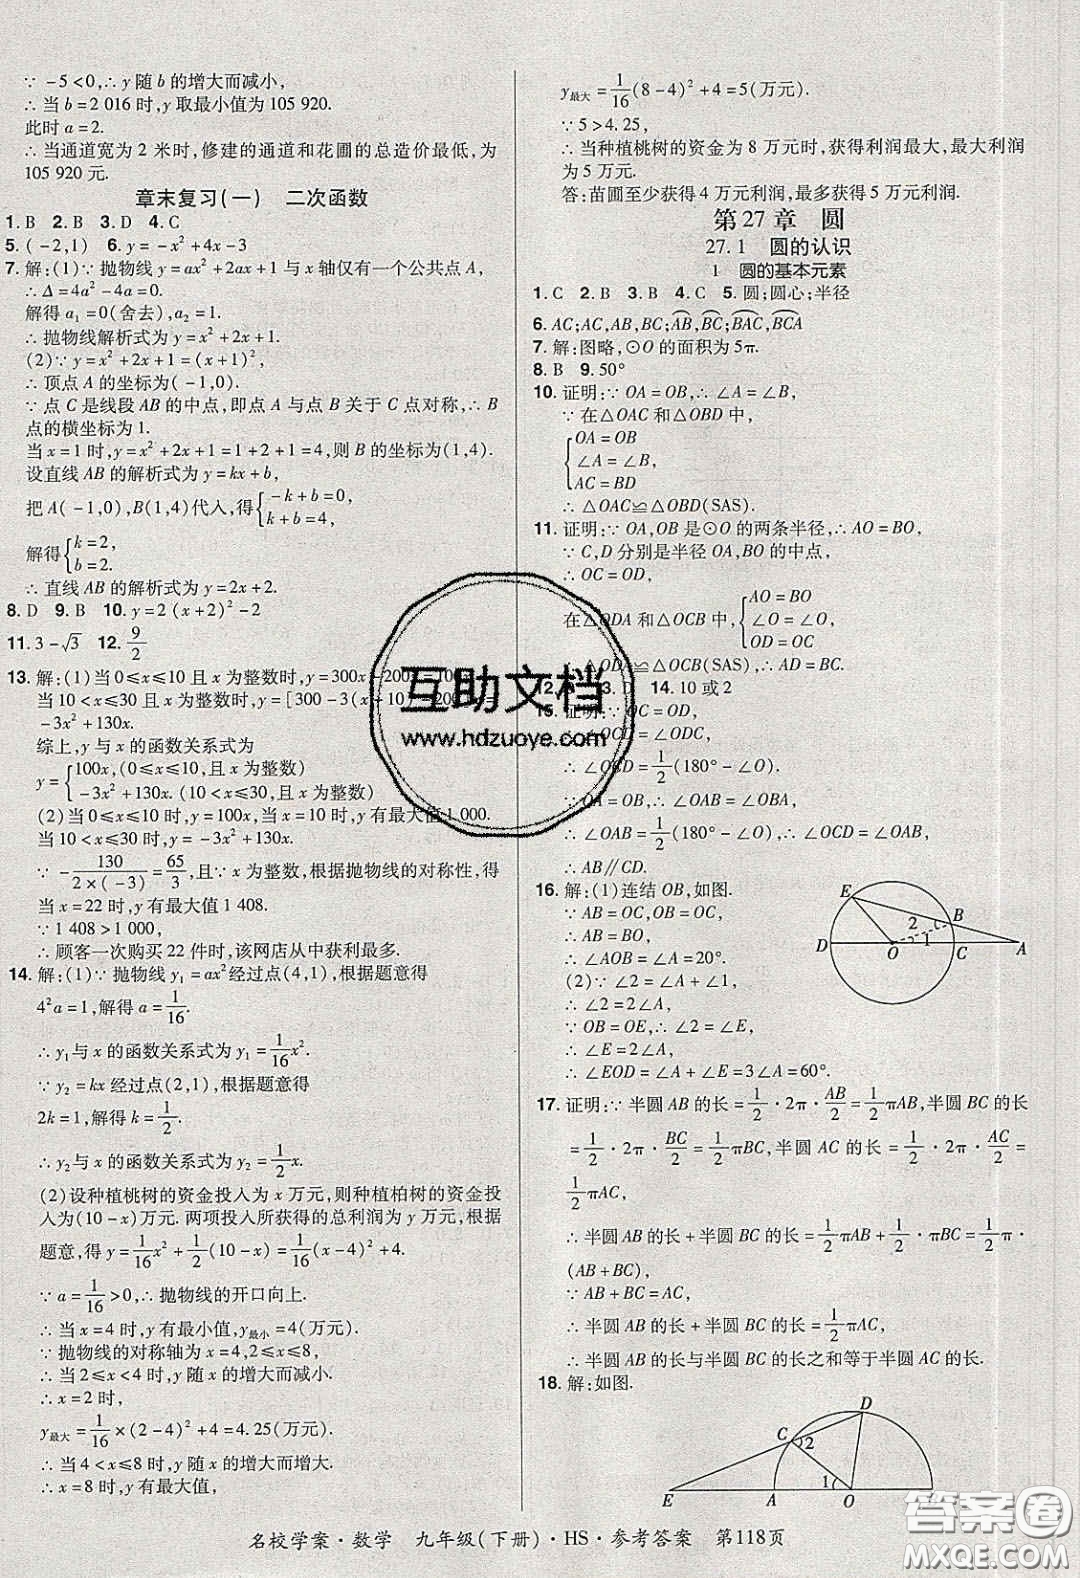 ∵ -5<0,∴ y 随 b 的增大而减小,
∴ 当 b=2 016 时,y 取最小值为 105 920.
此时 a=2.
∴ 当通道宽为 2 米时,修建的通道和花圃的总造价最低,为
105 920 元.
章末复习(一) 二次函数
1. B 2. B 3. D 4. C
5. (-2,1) 6. y=-x²+4x-3
7. 解:(1)∵ 抛物线 y=ax²+2ax+1 与 x 轴仅有一个公共点 A,
∴ Δ=4a²-4a=0.
解得 a₁=0(舍去),a₂=1.
∴ 抛物线解析式为 y=x²+2x+1.
(2)∵ y=x²+2x+1=(x+1)²,
∴ 顶点 A 的坐标为(-1,0).
∵ 点 C 是线段 AB 的中点,即点 A 与点 B 关于 C 点对称,∴ B
点的横坐标为 1.
当 x=1 时,y=x²+2x+1=1+2+1=4,则 B(1,4).
设直线 AB 的解析式为 y=kx+b,
把 A(-1,0),B(1,4)代入,得{-k+b=0, k+b=4,
解得{k=2, b=2.
∴ 直线 AB 的解析式为 y=2x+2.
8. D 9. B 10. y=2(x+2)²-2
11. 3-√3 12. 9/2
13. 解:(1)当 0≤x≤10 且 x 为整数时,y=300x-200x=100x
当 10<x≤30 且 x 为整数时,y=[300-3(x+10)-200]x=
-3x²+130x.
综上,y 与 x 的函数关系式为
y={100x,(0≤x≤10,且 x 为整数) -3x²+130x.(10<x≤30,且 x 为整数)
(2)当 0≤x≤10 时,当 x=10 时,y 有最大值 1 000.
当 10<x≤30 时,y=-3x²+130x.
∵ -130/(2×(-3))=65/3,且∵ x 为整数,根据抛物线的对称性,得
当 x=22 时,y 有最大值 1 408.
∵ 1 408>1 000,
∴ 顾客一次购买 22 件时,该网店从中获利最多.
14. 解:(1)∵ 抛物线 y₁=ax²经过点(4,1),根据题意得
4²a=1,解得 a=1/16.
∴ y₁与 x 的函数关系式为 y₁=1/16x².
∵ y₂=kx 经过点(2,1),根据题意得
2k=1,解得 k=1/2.
∴ y₂与 x 的函数关系式为 y₂=1/2x.
(2)设种植桃树的资金投入为 x 万元,则种植柏树的资金投
入为(10-x)万元.两项投入所获得的总利润为 y 万元,根据
题意,得 y=1/16x²+1/2(10-x)=1/16(x-4)²+4.
∵ a=1/16>0,∴ 抛物线的开口向上.
∴ 当 x=4 时,y 有最小值,y最小=4(万元).
∵ 抛物线的对称轴为 x=4,2≤x≤8,
∴ 当 2≤x<4 时,y 随 x 的增大而减小.
y最大=1/16×(2-4)²+4=4.25(万元).
∴ 当 4<x≤8 时,y 随 x 的增大而增大.
∴ x=8 时,y 有最大值,
y最大=1/16(8-4)²+4=5(万元).
∵ 5>4.25,
∴ 当种植桃树的资金为 8 万元时,获得利润最大,最大利润
为 5 万元.
答:苗圃至少获得 4 万元利润,最多获得 5 万元利润.
第 27 章 圆
27.1 圆的认识
1 圆的基本元素
1. C 2. B 3. B 4. C 5. 圆;圆心;半径
6. AC;AC,AB,BC;A͡B,B͡C;B͡AC,B͡CA
7. 解:图略,⊙O 的面积为 5π.
8. B 9. 50°
10. 证明:∵ OA=OB,∴ ∠A=∠B.
∵ 在△OAC 和△OBD 中,
{OA=OB ∠A=∠B AC=BD
∴ △OAC≌△OBD(SAS).
11. 证明:∵ OA,OB 是⊙O 的两条半径,∴ AO=BO,
∵ C,D 分别是半径 OA,BO 的中点,
∴ OC=OD,
在△ODA 和△OCB 中,{AO=BO ∠O=∠O OD=OC
∴ △ODA≌△OCB(SAS),∴ AD=BC.
12. 13. D 14. 10 或 2
15. 证明:∵ OC=OD,
∴ ∠OCD=∠ODC.
∴ ∠OCD=1/2(180°-∠O)
∵ OA=OB,∴ ∠OAB=∠OBA,
∴ ∠OAB=1/2(180°-∠O),∴ ∠OCD=∠OAB,
∴ AB∥CD.
16. 解:(1)连结 OB,如图.
∵ AB=OC,OB=OC,
∴ AB=BO.
∴ ∠AOB=∠A=20°.
(2)∵ ∠2=∠A+∠1,
∴ ∠2=2∠A,
∵ OB=OE,∴ ∠2=∠E,
∴ ∠E=2∠A,
∴ ∠EOD=∠A+∠E=3∠A=60°.
E B 2 1 D O C A
17. 证明:∵ 半圆 AB 的长=1/2·2π·AB/2=1/2πAB,半圆 BC 的长
=1/2·2π·BC/2=1/2πBC,半圆 AC 的长=1/2·2π·AC/2=
1/2πAC,
∴ 半圆 AB 的长+半圆 BC 的长=1/2πAB+1/2πBC=1/2π·
(AB+BC).
∵ AB+BC=AC,
∴ 半圆 AB 的长+半圆 BC 的长=1/2πAC,
∴ 半圆 AB 的长与半圆 BC 的长之和等于半圆 AC 的长.
18. 解:如图.
D C 2 1 E A O
名校学案·数学 九年级(下册)·HS·参考答案 第118页
互助文档
www.hdzuoye.com
答案圈
MXQE.COM